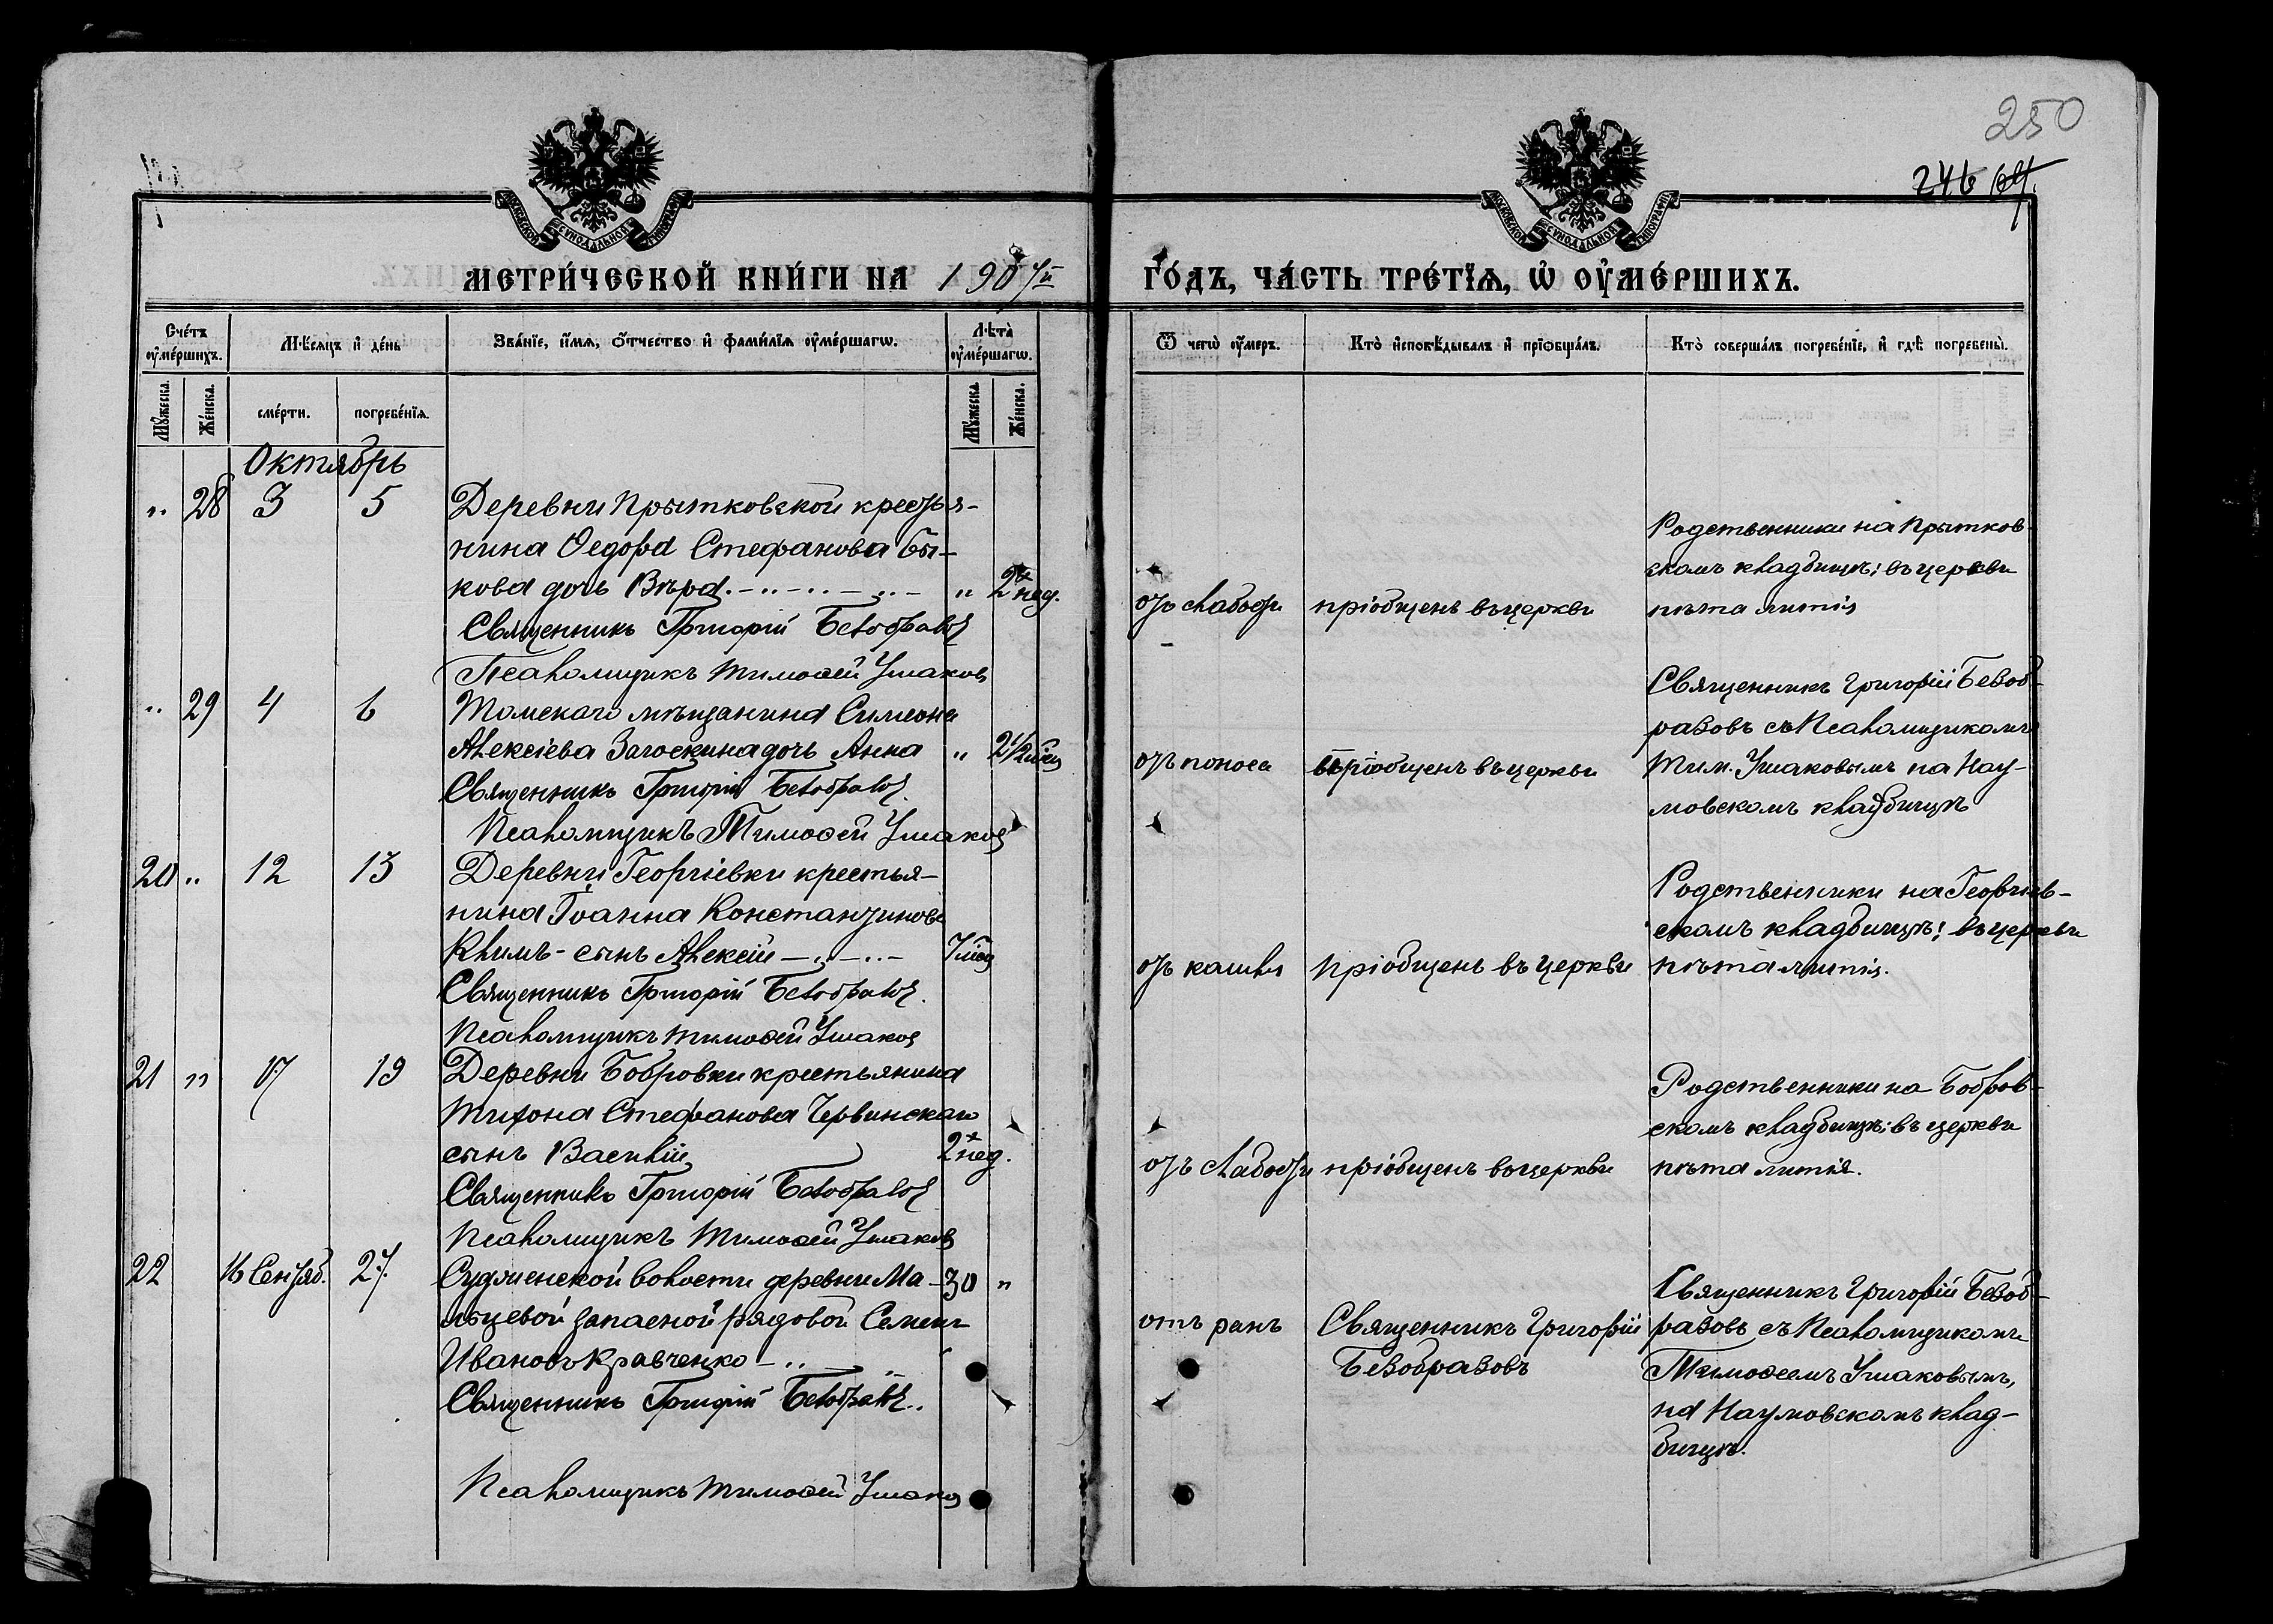 250
246
МЕТРИ́ЧЕСКОЙ КНИ́ГИ НА 1907й ГО́ДЪ, ЧА́СТЬ ТРЕ́ТЇѦ, Ѡ҆ ОУ҆МЕ́РШИХЪ.
Сче́тъ оу҆ме́ршихъ.
Мѣ́сяцъ и҆ де́нь
Зва́нїе, и҆́мѧ, о҆́тчество и҆ фами́лїѧ оу҆ме́ршагѡ.
Лѣта̀ оу҆ме́ршагѡ.
Ѿ чегѡ̀ оу҆́меръ.
Кто̀ и҆сповѣ́дывалъ и҆ прїѡбща́лъ.
Кто̀ соверша́лъ погребе́нїе, и҆ гдѣ̀ погребены̀.
Мꙋ́жеска. Же́нска. сме́рти. погребе́нїѧ. Мꙋ́жеска. Же́нска.
Октябрь
" 28 3 5 Деревни Прытковской крестья-
нина Ѳедора Стефанова Бы-
кова дочь Вѣра. " 2 нед.
Священникъ Григорій Безобразов
Псаломщикъ Тимоѳей Ушаков
отъ слабости пріобщенъ въ церкви
Родственники на Прытков-
скомъ кладбищѣ; въ церкви
пѣта литія
" 29 4 6 Томскаго мѣщанина Симеона
Алексіева Загоскина дочь Анна " 2½
Священникъ Григорій Безобразов
Псаломщикъ Тимоѳей Ушаков
отъ поноса пріобщенъ въ церкви
Священникъ Григорій Безоб-
разовъ съ Псаломщикомъ
Тим. Ушаковымъ на Нау-
мовскомъ кладбищѣ
20 " 12 13 Деревни Георгіевки крестья-
нина Іоанна Константинова
Климъ - сынъ Алексій 7
Священникъ Григорій Безобразов
Псаломщикъ Тимоѳей Ушаков
отъ кашля Пріобщенъ въ церкви
Родственники на Георгіев-
скомъ кладбищѣ; въ церкви
пѣта литія.
21 " 17 19 Деревни Бобровки крестьянина
Тихона Стефанова Червинскаго
сынъ Василій 2 нед.
Священникъ Григорій Безобразов
Псаломщикъ Тимоѳей Ушаков
отъ слабости пріобщенъ въ церкви
Родственники на Бобров-
скомъ кладбищѣ; въ церкви
пѣта литія.
22 16 Сентяб. 27. Судженской волости деревни Ма- 30 "
льцевой запасной рядовой Семенъ
Ивановъ Кравченко
Священникъ Григорій Безобразов
Псаломщикъ Тимоѳей Ушаков
отъ ранъ Священникъ Григорій
Безобразовъ
Священникъ Григорій Безоб-
разовъ съ Псаломщикомъ
Тимоѳеемъ Ушаковымъ,
на Наумовскомъ клад-
бищѣ.